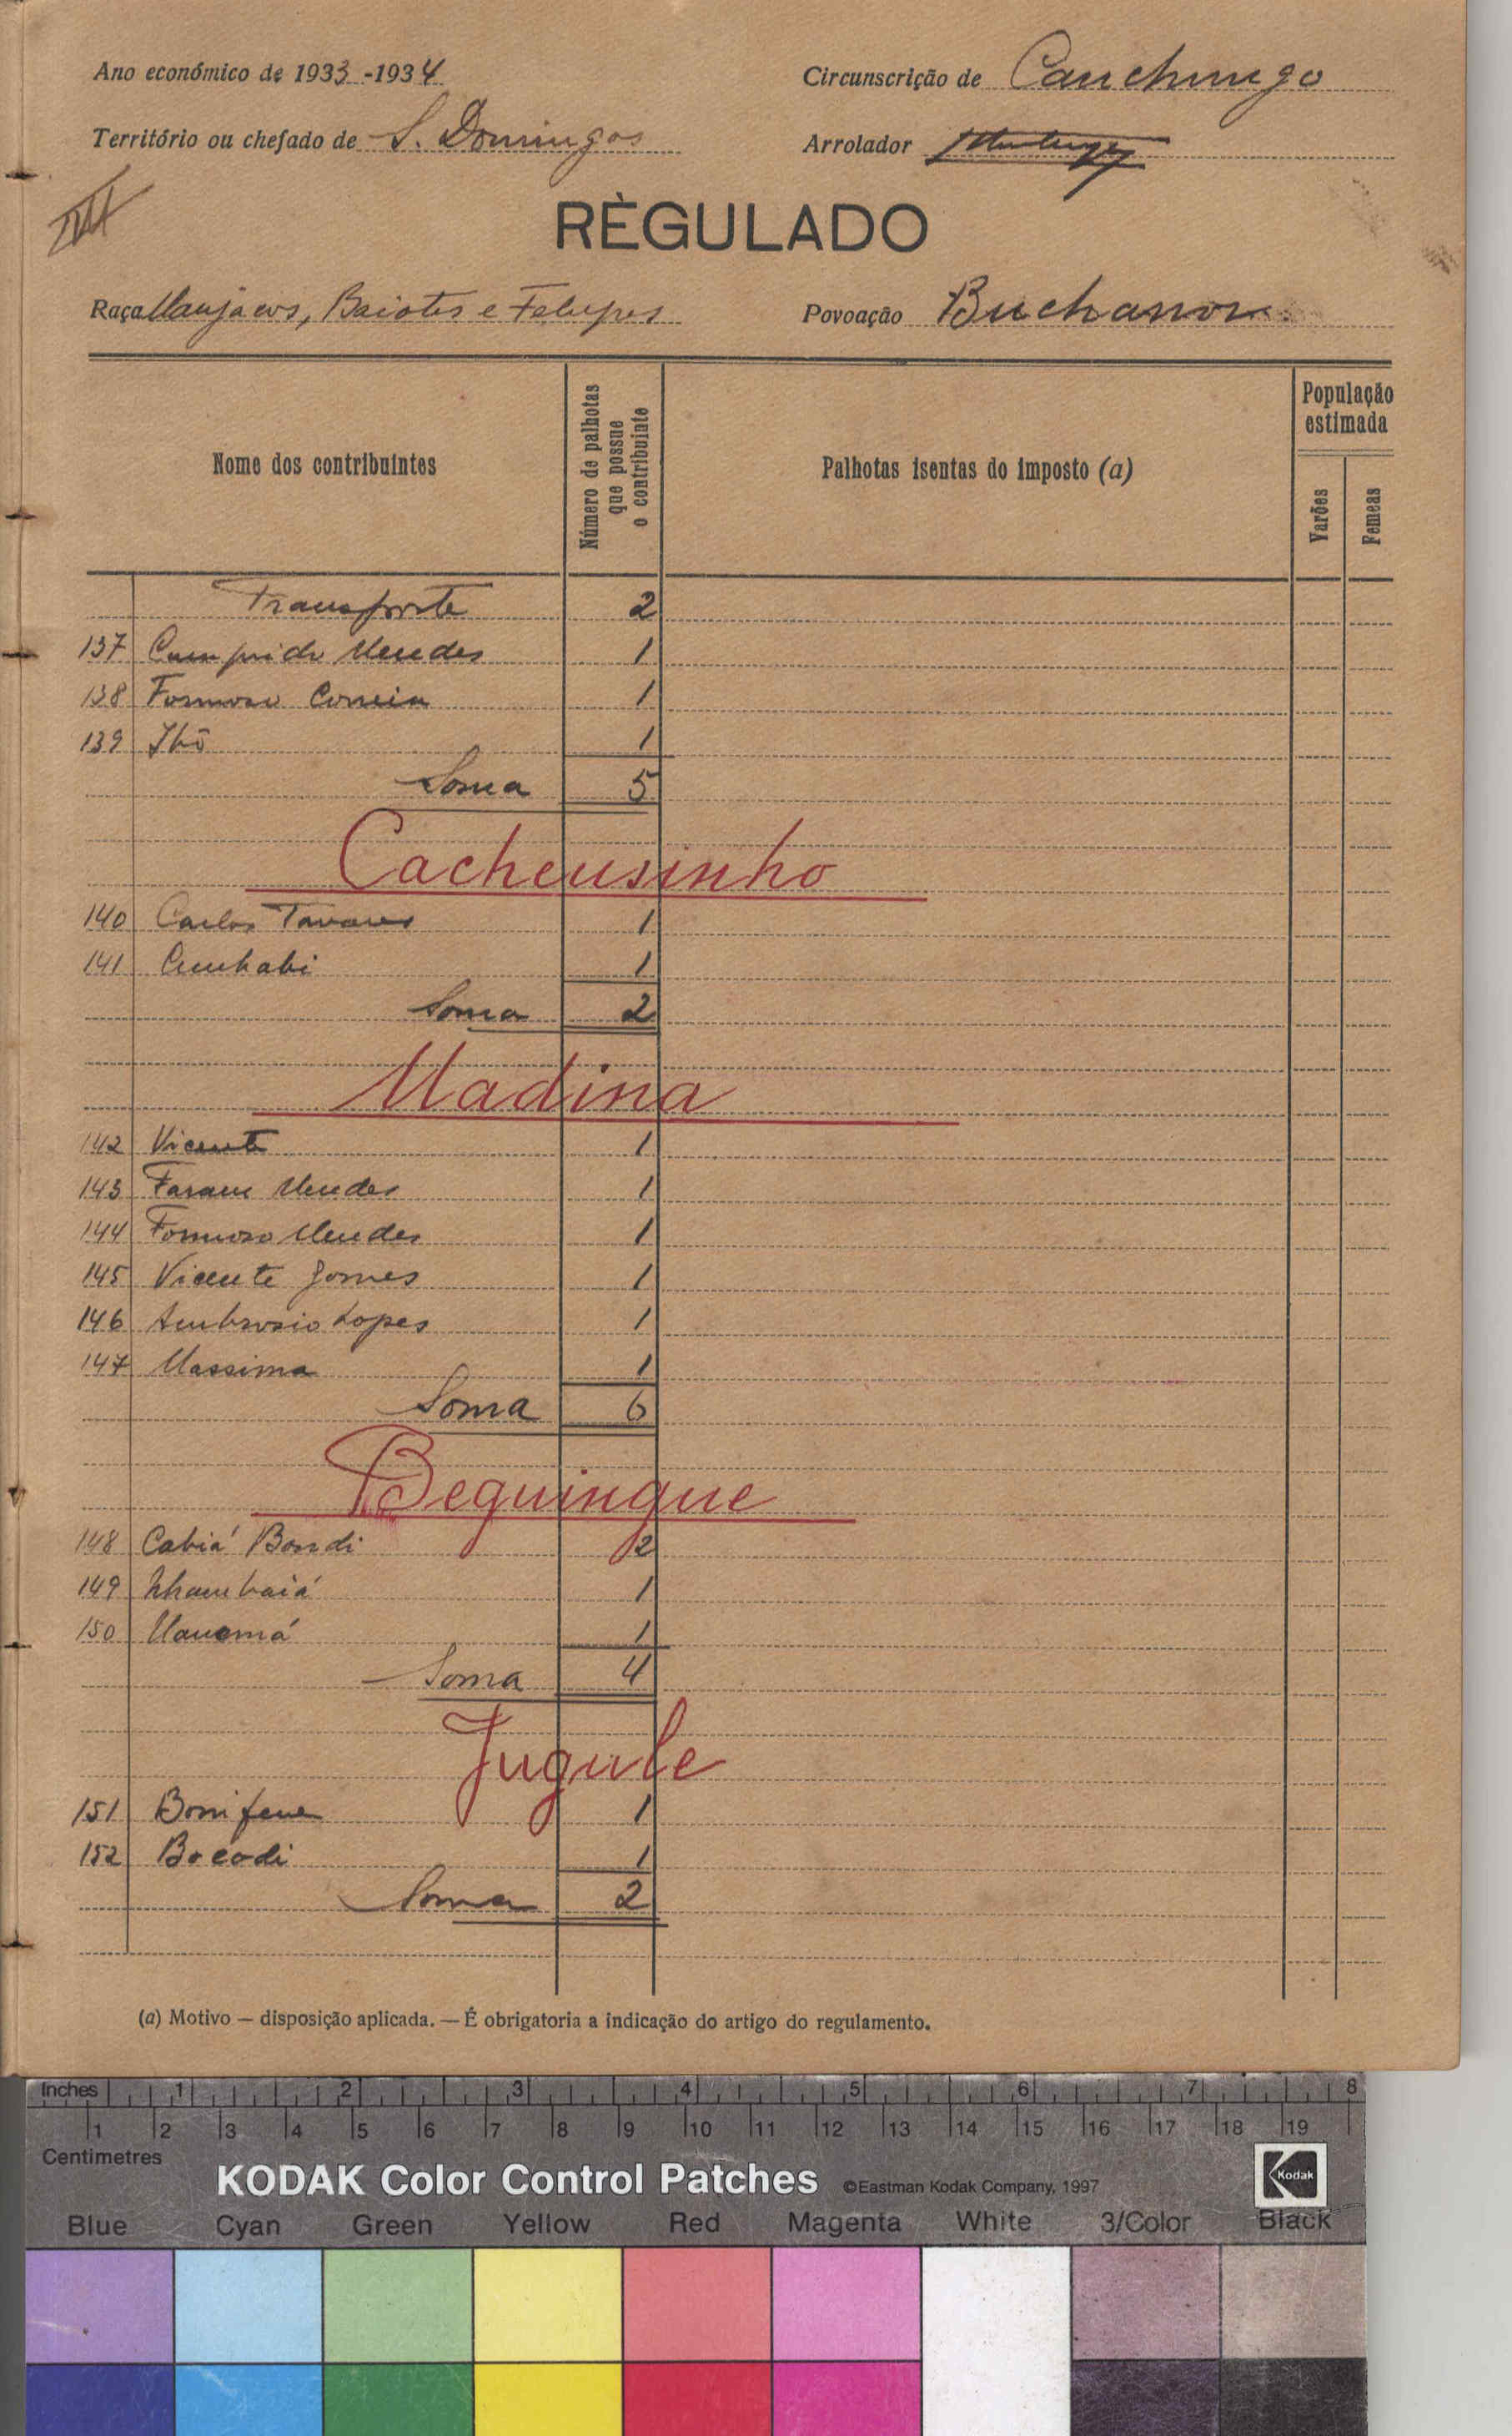 Ano económico de 1933-1934
Circunscrição de Canchungo
Território ou chefado de S. Domingos
Arrolador
RÈGULADO
Raça Manjacos, Baiotes e Felupes
Povoação Buchanor
Nome dos contribuintes
Número de palhotas que possue o contribuinte
Palhotas isentas do imposto (a)
População estimada
Varões
Femeas
Transporte 2
137 Cumprido Mendes 1
138 Formoso Correia 1
139 1
Soma 5
Cacheusinho
140 Carlos Tavares 1
141 1
Soma 2
Madina
142 Vicente 1
143 Faram Mendes 1
144 Formoso Mendes 1
145 Vicente Gomes 1
146 Ambrosio Lopes 1
147 Massima 1
Soma 6
Bequingue
148 Cabiá Bondi 2
149 Nhambaiá 1
150 1
Soma 4
Jugule
151 Bonifene 1
152 Bocodi 1
Soma 2
(a) Motivo — disposição aplicada. — É obrigatoria a indicação do artigo do regulamento.
Inches 1 2 3 4 5 6 7 8
1 2 3 4 5 6 7 8 9 10 11 12 13 14 15 16 17 18 19
Centimetres
KODAK Color Control Patches ©Eastman Kodak Company, 1997 Kodak
Blue Cyan Green Yellow Red Magenta White 3/Color Black